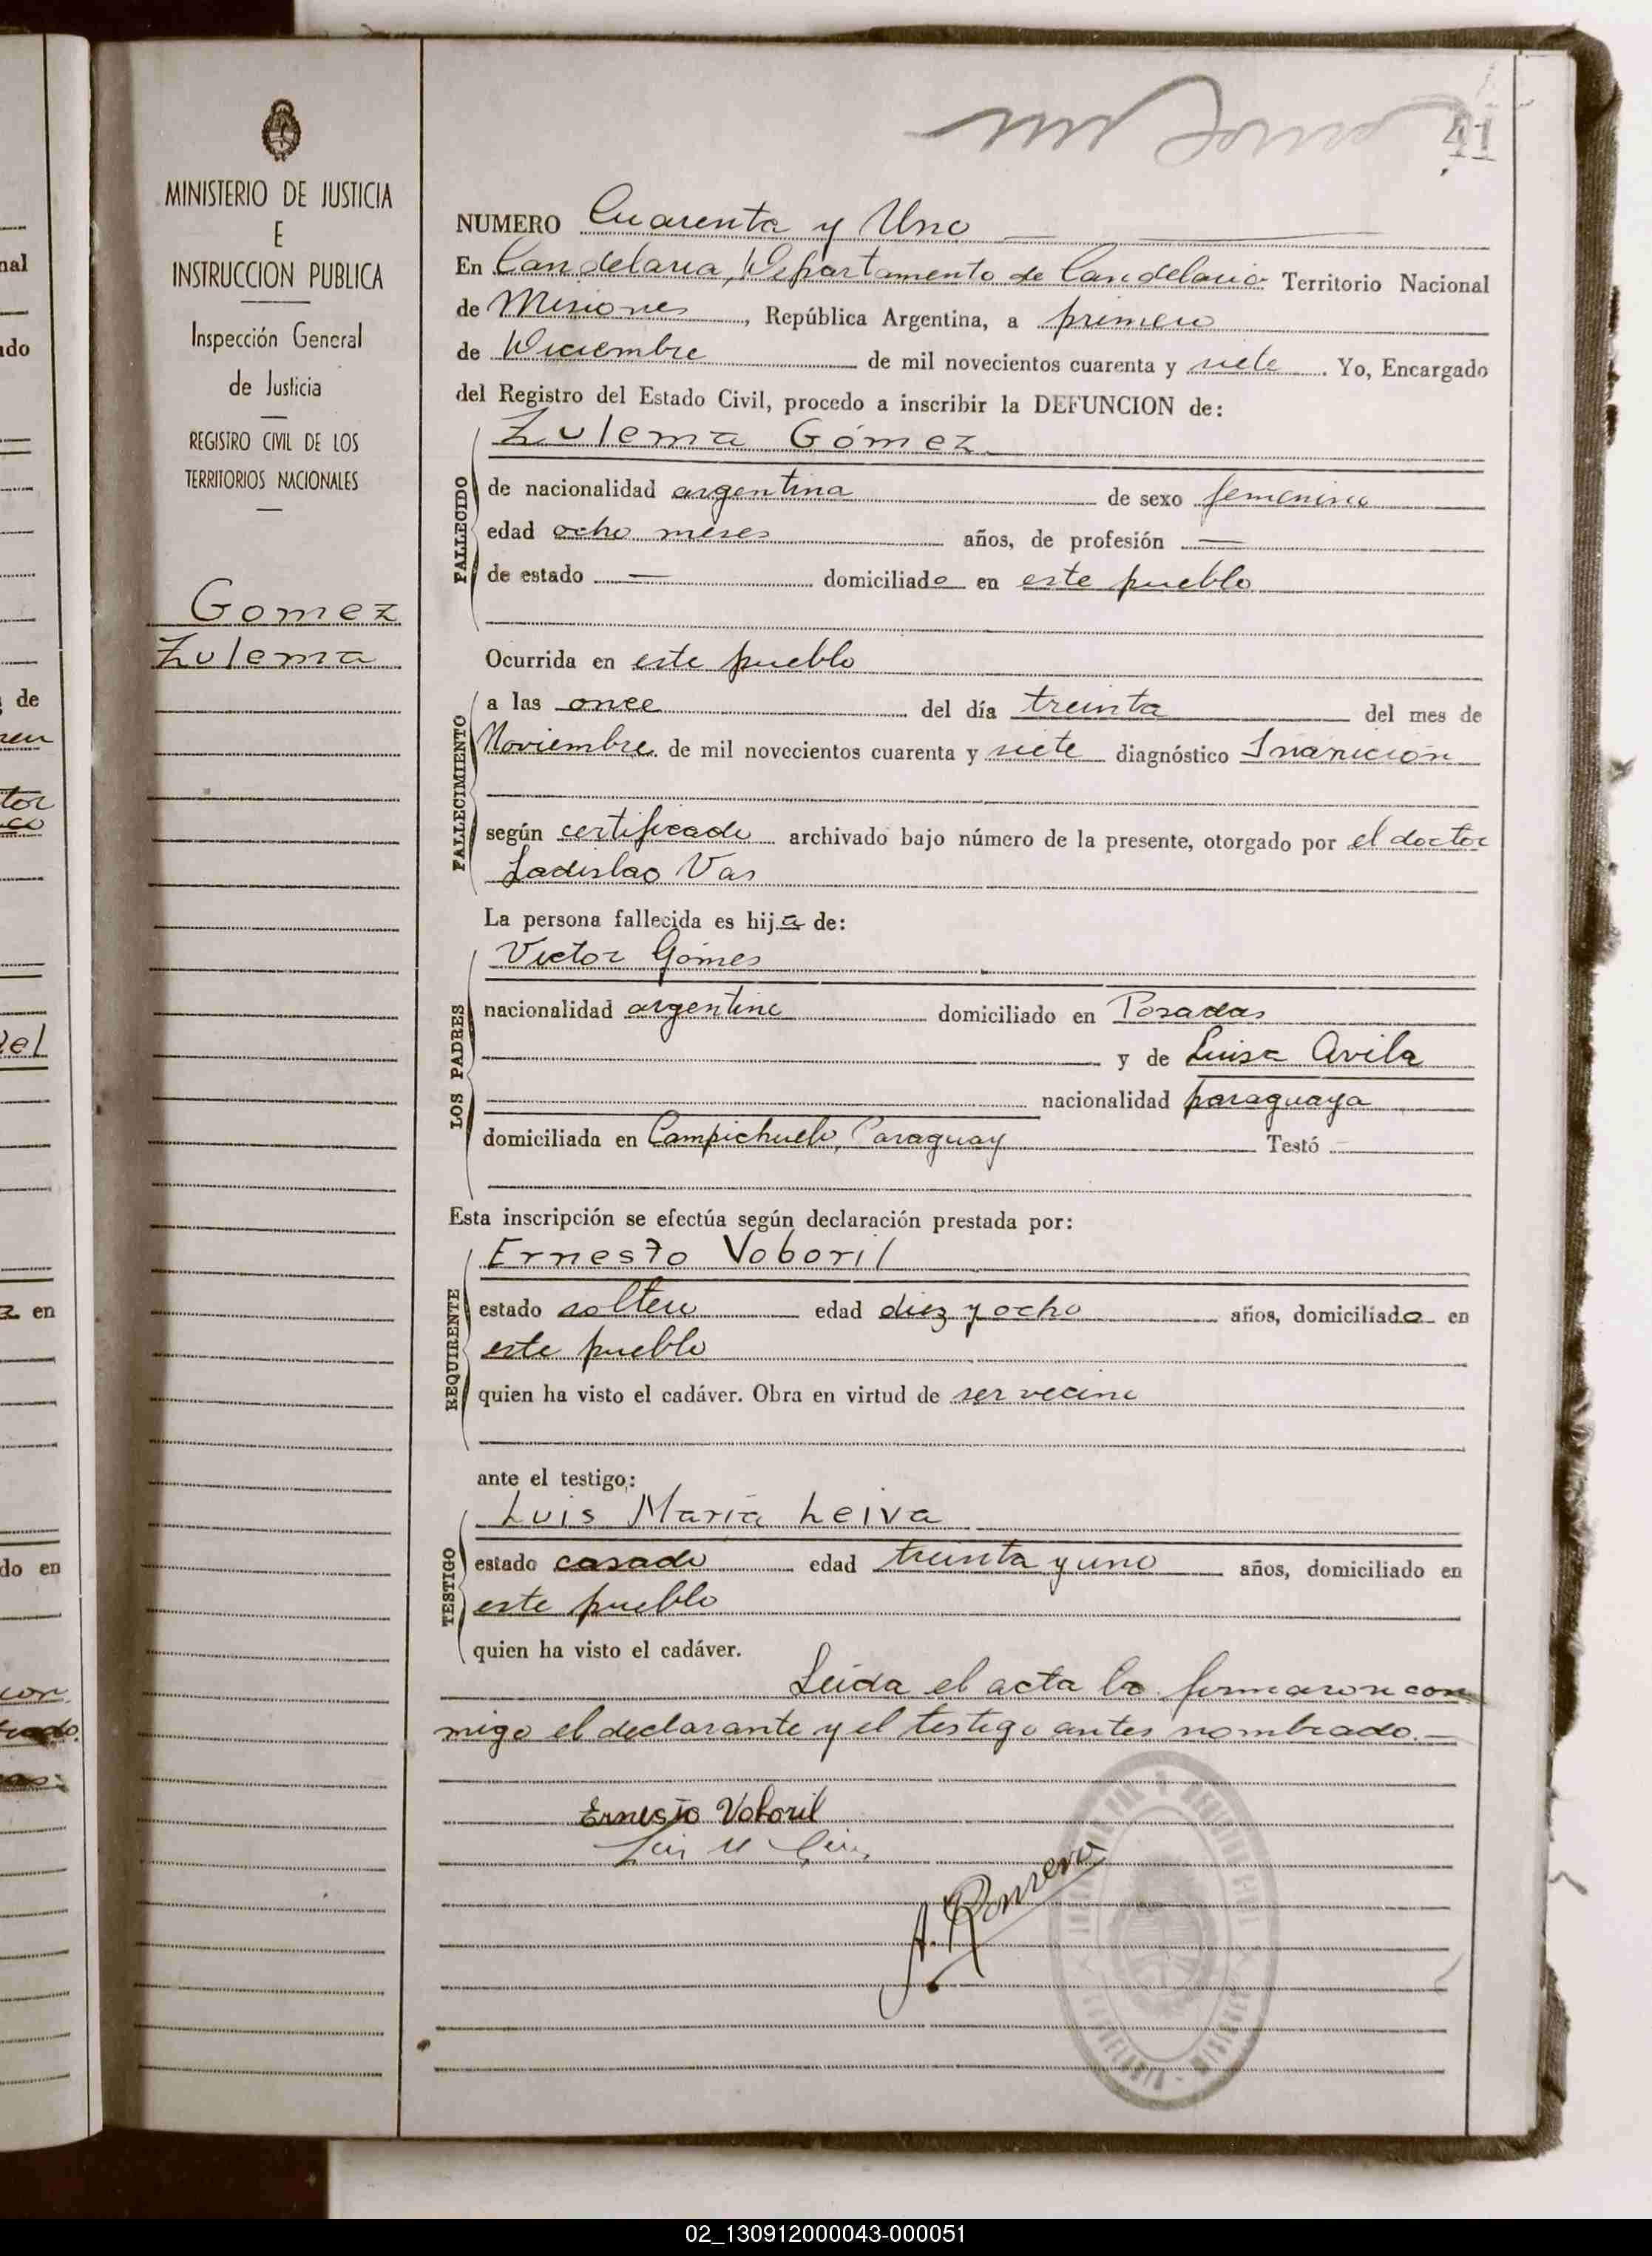 41
MINISTERIO DE JUSTICIA
E
INSTRUCCION PUBLICA
Inspección General
de Justicia
REGISTRO CIVIL DE LOS
TERRITORIOS NACIONALES
Gomez
Zulema
NUMERO Cuarenta y Uno
En Candelaria, Departamento de Candelaria Territorio Nacional
de Misiones, República Argentina, a primero
de Diciembre de mil novecientos cuarenta y siete. Yo, Encargado
del Registro del Estado Civil, procedo a inscribir la DEFUNCION de:
Zulema Gómez
FALLECIDO
de nacionalidad argentina de sexo femenino
edad ocho meses años, de profesión —
de estado — domiciliado en este pueblo
Ocurrida en este pueblo
FALLECIMIENTO
a las once del día treinta del mes de
Noviembre de mil novecientos cuarenta y siete diagnóstico Inanición
según certificado archivado bajo número de la presente, otorgado por el doctor
Ladislao Vas
La persona fallecida es hija de:
LOS PADRES
Victor Gómes
nacionalidad argentino domiciliado en Posadas
y de Luisa Avila
nacionalidad paraguaya
domiciliada en Campichuelo, Paraguay Testó
Esta inscripción se efectúa según declaración prestada por:
REQUIRENTE
Ernesto Voboril
estado soltero edad diez y ocho años, domiciliado en
este pueblo
quien ha visto el cadáver. Obra en virtud de ser vecino
ante el testigo:
TESTIGO
Luis María Leiva
estado casado edad treinta y uno años, domiciliado en
este pueblo
quien ha visto el cadáver.
Leida el acta la firmaron con
migo el declarante y el testigo antes nombrado.—
Ernesto Voboril
A. Romero
02_130912000043-000051